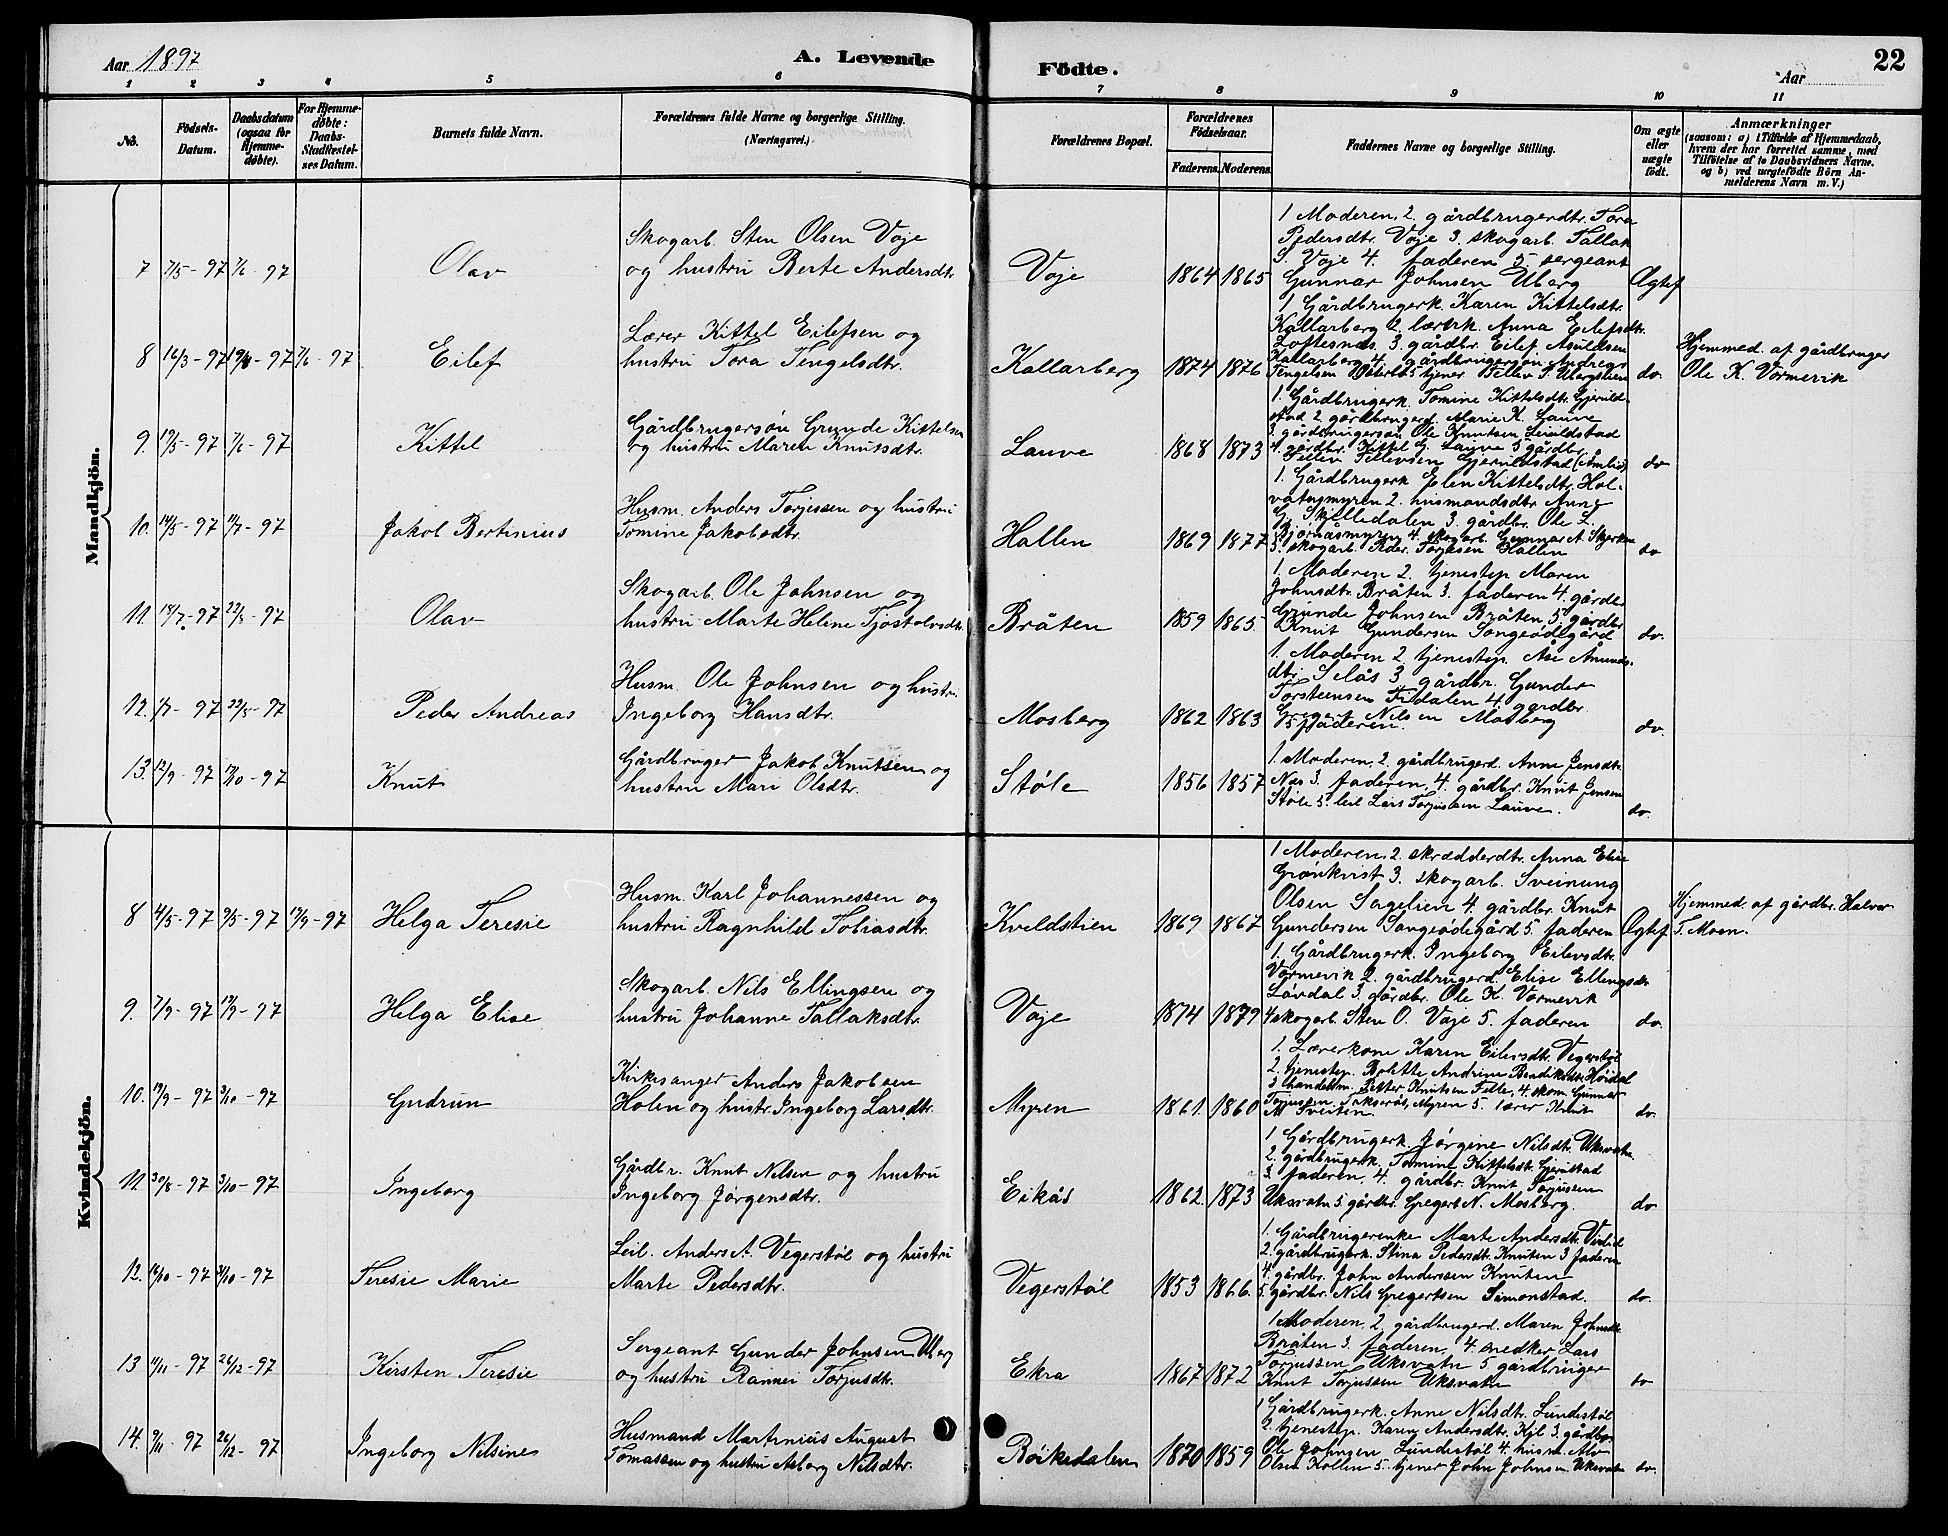 Aar 1897
A. Levende
Födte.
Aar
22
1 2 3 4 5 6 7 8 9 10 11
No.
Födsels-
Datum.
Daabsdatum
(ogsaa for
Hjemme-
döbte).
For Hjemme-
döbte:
Daabs-
Stadfæstel-
ses Datum.
Barnets fulde Navn.
Forældrenes fulde Navne og borgerlige Stilling.
(Næringsvei.)
Forældrenes Bopæl.
Forældrenes
Födselsaar.
Faderens. Moderens.
Faddernes Navne og borgerlige Stilling.
Om ægte
eller
uægte
födt.
Anmærkninger
(saasom: a) i Tilfælde af Hjemmedaab,
hvem der har forrettet samme, med
Tilföielse af to Daabsvidners Navne,
og b) ved uægtefödte Börn An-
melderens Navn m. V.)
Mandkjön.
7 7/5-97 7/6-97 Olav
Skogarb. Sten Olsen Voje
og hustru Berte Andersdtr.
Voje 1864 1865
1 Moderen, 2. gårdbrugerdtr. Tora
Pedersdtr. Voje 3. skogarb. Tallak
S. Voje 4. faderen 5. sergeant
Gunnar Johnsen Uberg
Ægtef
8 16/3-97 7/6-97 Eilef
Lærer Kittel Eilefsen og
hustru Tora Tengelsdtr.
Kallarberg 1874 1876
1 Gårdbrugerk. Karen Kittelsdtr.
Kallarberg 2. lærerk. Anna Eilefsdtr.
Loftesnes. 3. gårdbr. Eilef Asulfsen
Kallarberg 4. gårdbrugersøn Anders
Tengelsen 5 tjener Tellev
do.
Hjemmed. af gårdbruger
Ole K. Vormerik
9. 19/5-97 7/6-97 Kittel
Gårdbrugersøn Grunde Kittelsen
og hustru Maren Knutsdtr.
Lauve 1868 1873
1. Gårdbrugerk. Tomine Kittelsdtr. Gjerild-
stad 2. gårdbrugerd. Marie K. Lauve
3. gårdbrugersøn Ole Knutsen
4. gårdbr. Kittel G. Lauve 5 gårdbr.
Tellev Tellevsen Gjerulstad (Åmli)
do
10. 14/5-97 11/7-97 Jakob Bertinius
Husm. Anders Torjussen og hustru
Tomine Jakobsdtr.
Hallen 1869 1877
1. Gårdbrugerk Elen Kittelsdtr. Hol-
vatnsmyren 2. husmandsdtr. Anne
G. Skjelledalen 3. gårdbr. Ole L.
4. skogarb. Gunnar A.
5. skogarb. Peder Torjusen Hallen
do
11 18/7-97 22/8-97 Olav
Skogarb. Ole Johnsen og
hustru Marte Helene Tjøstolvsdtr.
Bråten 1859 1865
1. Moderen 2. tjenestep. Maren
Johnsdtr. Bråten 3. faderen 4. gårdb
Grunde Johnsen Bråten 5. gårdbr
Knut Gundersen Songeødegård
do.
12. 22/8-97 Peder Andreas
Husm. Ole Johnsen og hustru
Ingeborg Hansdtr.
Mosberg 1862 1863
1. Moderen 2 tjenestep. Åse Åmunds-
dtr. Selås 3 gårdbr. Gunder
Torsteinsen Tvedalen 4. gårdbr.
Gregert Nilsen Mosberg
5 faderen.
do.
13. 12/9-97 17/10-97 Knut
Gårdbruger Jakob Knutsen og
hustru Mari Olsdtr.
Støle 1856 1857
1. Moderen, 2. gårdbrugerd. Anne Jensdtr.
Næs 3. faderen, 4. gårdbr. Knut Jensen
Støle 5 leil Lars Torjussen Lauve.
do.
Kvindekjön.
8 4/5-97 9/5-97 19/9-97 Helga Teresie
Husm. Karl Johannessen og
hustru Ragnhild Tobiasdtr.
Kveldstien 1869 1867
1 Moderen, 2. skrædderdtr. Anna Elise
Grønkvist 3. skogarb. Sveinung
Olsen Sagelien 4. gårdbr. Knut
Gundersen Songeødegård 5. faderen
Ægtef.
Hjemmed. af gårdbr. Halvor
T. Moen.
9. 7/9-97 19/9-97 Helga Elise
Skogarb. Nils Ellingsen og
hustru Johanne Tallaksdtr.
Voje 1874 1879
1. Gårdbrugerk. Ingeborg Eilevsdtr.
Vormevik 2. gårdbrugerd. Elise Ellingsdtr.
Løvdal 3. gårdbr. Ole K. Vormevik
4 skogarb. Sten O. Voje 5. faderen
do.
10. 19/9-97 3/10-97 Gudrun
Kirkesanger Anders Jakobsen
Holen og hustr. Ingeborg Larsdtr.
Myren 1861. 1860
1. Lærerkone Karen Eilevsdtr. Vegerstøl
2. tjenestep. Bolette Andrine Bendiksdtr. Høidal
3 handelsm. Petter Knutsen Felle, 4. skom. Gunnar
Torjussen Myren 5. lærer Knut
Tveiten.
do.
11 30/8-97 3/10-97 Ingeborg
Gårdbr. Knut Nilsen og hustru
Ingeborg Jørgensdtr.
Eikås 1862. 1873
1 Gårdbrugerk. Jørgine Nilsdtr. Uksvatn.
2. gårdbrugerk. Tomine Kittelsdtr. Gjerustad
3. faderen, 4. gårdbr. Knut Torjussen
Uksvatn 5. gårdbr. Gregert N. Mosberg.
do
12. 3/10-97 Teresie Marie
Leil. Anders A. Vegerstøl og hustru
Marte Pedersdtr.
Vegerstøl 1853 1866.
1. Gårdbrugerenke Marte Andersdtr.
2. gårdbrugerk. Stina Pedersdtr. Knuten 3 faderen
4. gårdbr. John Anderssen Knuten
5. gårdbr. Nils Gregertsen Simonstad.
do.
13 11/11-97 26/12-97 Kirsten Teresie
Sergeant Gunder Johnsen Uberg
og hustru Rannei Torjusdtr.
Ekra 1867 1872
1 Moderen, 2. gårdbrugerd. Maren Johnsdtr.
Bråten 3. faderen, 4. snedker Lars
Torjussen Uksvatn 5 gårdbruger
Knut Torjussen Uksvatn
do
14. 9/11-97 26/12-97 Ingeborg Nilsine
Husmand Martinius August
Tomassen og hustru Asborg Nilsdtr.
Bøikedalen 1870 1859
1 Gårdbrugerk. Anne Nilsdtr. Lundestøl
2. tjenestep. Karen Andersdtr. Kjil 3. gårdbr.
Ole Johnsen Lundestøl 4. husm.
Olsen Hollen 5. tjener John Johnsen Uksvatn
do.